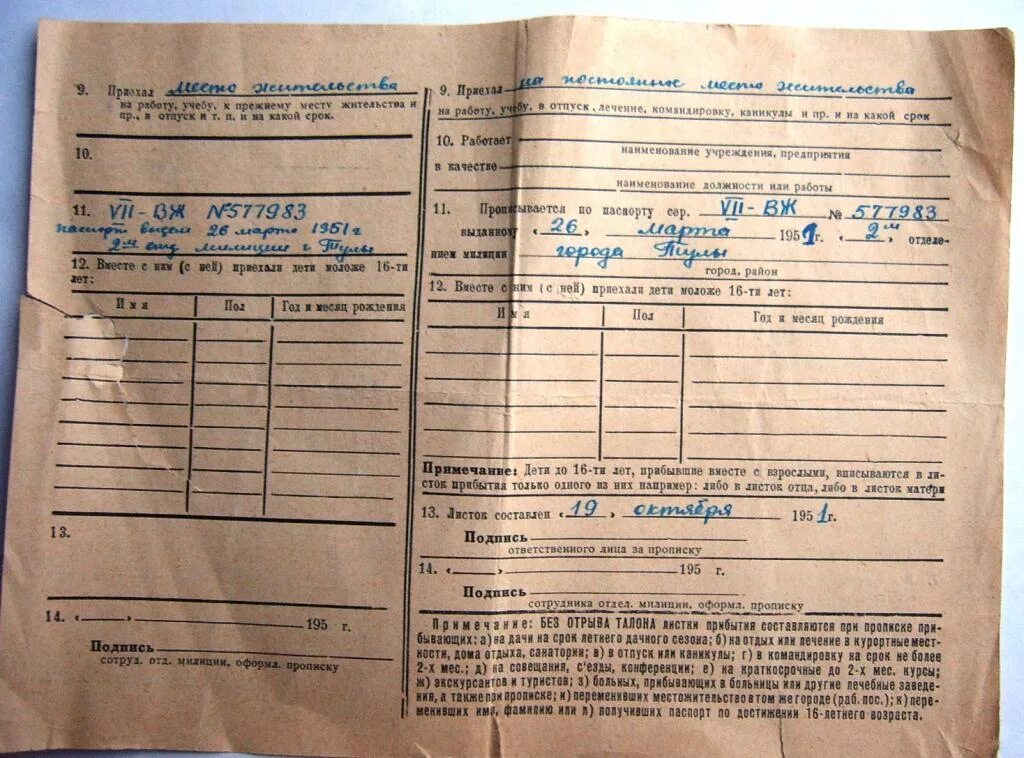 9. Приехал место жительства
на работу, учебу, к прежнему месту жительства и
пр., в отпуск и т. п. и на какой срок.
10.
11. VII - ВЖ №577983
паспорт выдан 26 марта 1951 г
2ым отд милиции г. Тулы
12. Вместе с ним (с ней) приехали дети моложе 16-ти
лет:
Имя Пол Год и месяц рождения
13.
14. « » 195 г.
Подпись
сотруд. отд. милиции, оформ. прописку
9. Приехал на постоянное место жительства
на работу, учебу, в отпуск, лечение, командировку, каникулы и пр. и на какой срок
10. Работает
наименование учреждения, предприятия
в качестве
наименование должности или работы
11. Прописывается по паспорту сер. VII - ВЖ № 577983
выданному « 26 » марта 1951г. « 2ым отделе-
нием милиции города Тулы
город, район
12. Вместе с ним (с ней) приехали дети моложе 16-ти лет:
Имя Пол Год и месяц рождения
Примечание: Дети до 16-ти лет, прибывшие вместе с взрослыми, вписываются в ли-
сток прибытия только одного из них например: либо в листок отца, либо в листок матери
13. Листок составлен « 19 » октября 1951г.
Подпись
ответственного лица за прописку
14. « » 195 г.
Подпись
сотрудника отдел. милиции, оформл. прописку
Примечание: БЕЗ ОТРЫВА ТАЛОНА листки прибытия составляются при прописке при-
бывающих: а) на дачи на срок летнего дачного сезона; б) на отдых или лечение в курортные мест-
ности, дома отдыха, санатории; в) в отпуск или каникулы; г) в командировку на срок не более
2-х мес.; д) на совещания, с'езды, конференции; е) на краткосрочные до 2-х мес. курсы;
ж) экскурсантов и туристов; з) больных, прибывающих в больницы или другие лечебные заведе-
ния, а также при прописке; и) переменивших местожительство в том же городе (раб. пос.); к) пере-
менивших имя, фамилию или л) получивших паспорт по достижении 16-летнего возраста.